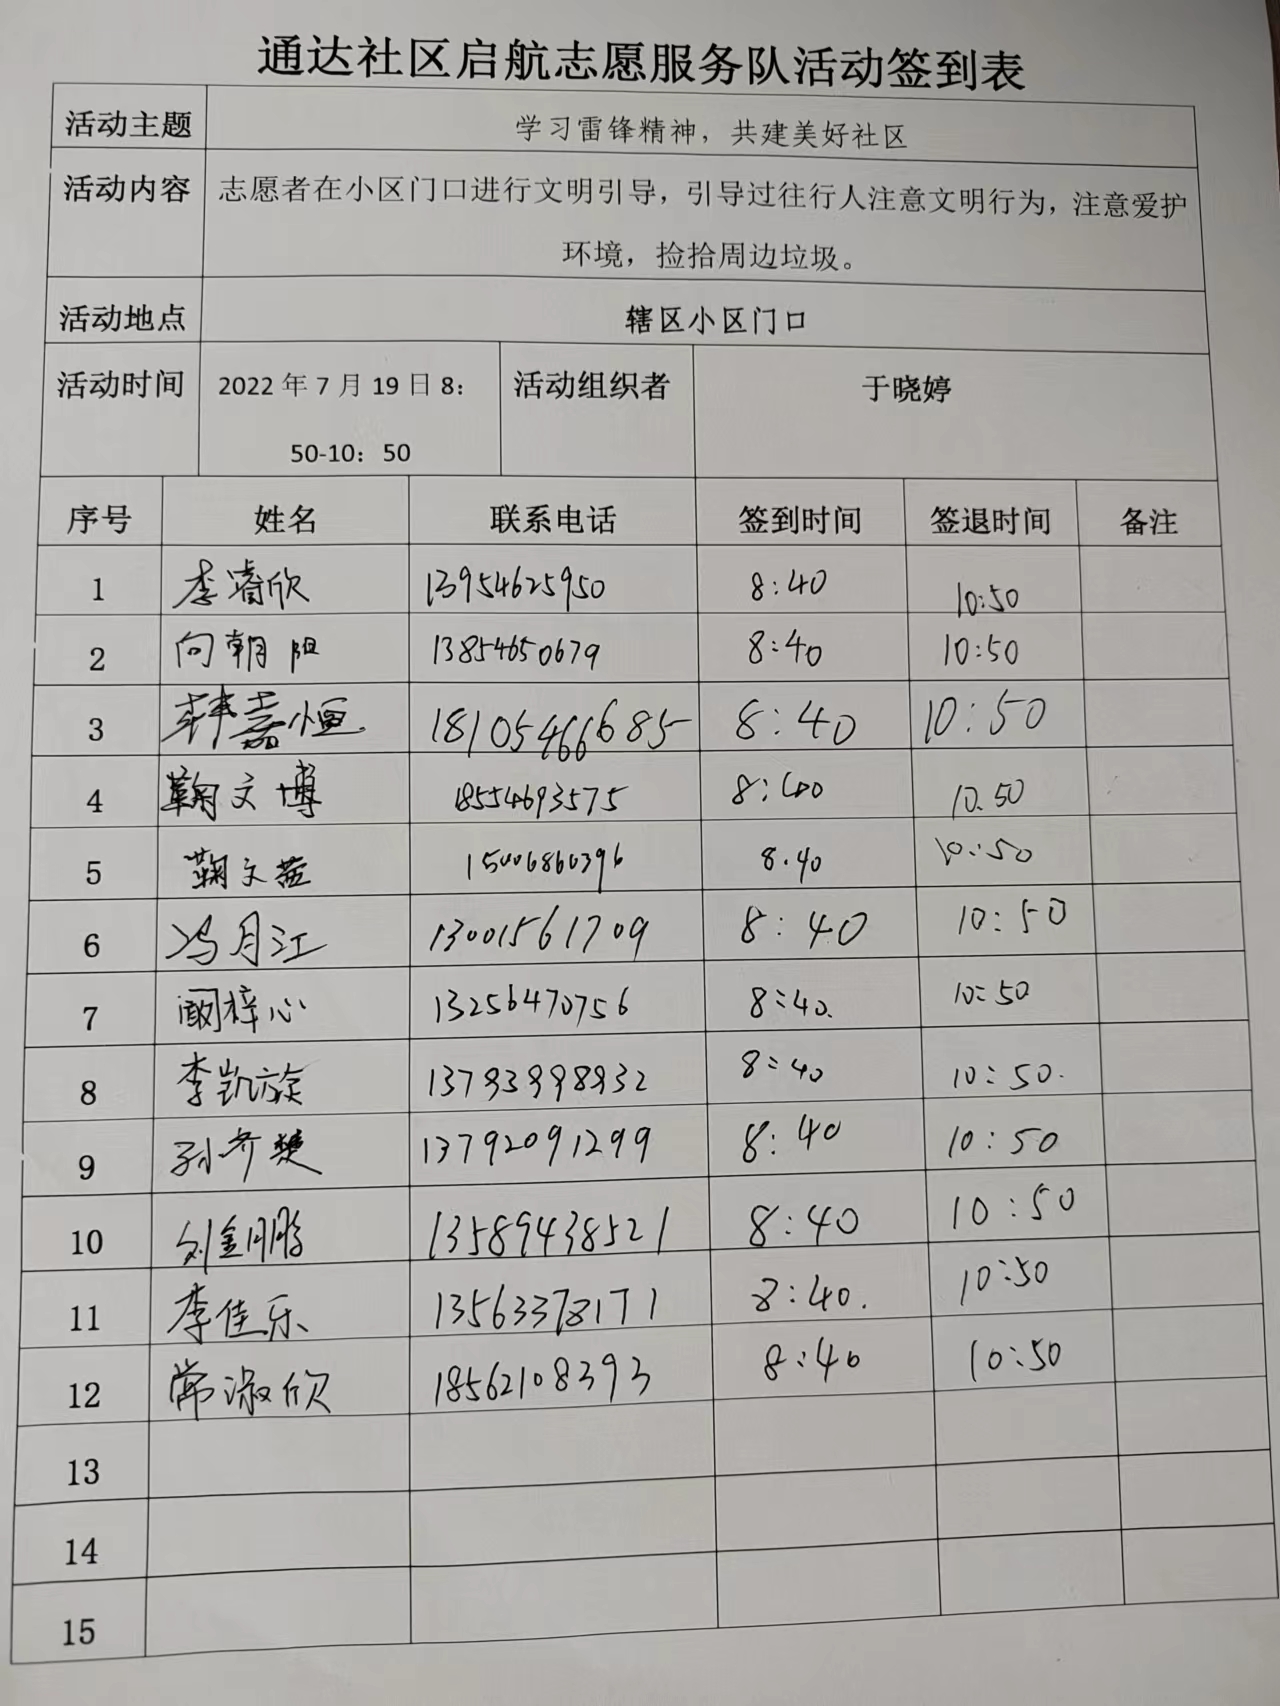 通达社区启航志愿服务队活动签到表
活动主题 学习雷锋精神，共建美好社区
活动内容 志愿者在小区门口进行文明引导，引导过往行人注意文明行为，注意爱护
环境，捡拾周边垃圾。
活动地点 辖区小区门口
活动时间 2022年7月19日8：
50-10：50
活动组织者 于晓婷
序号 姓名 联系电话 签到时间 签退时间 备注
1 李睿欣 13954625950 8:40 10:50
2 向朝阳 13854650679 8:40 10:50
3 韩嘉恒 18105466685 8:40 10:50
4 鞠文博 18554693575 8:40 10.50
5 鞠文益 15006860396 8.40 10:50
6 冯月江 13001561709 8:40 10:50
7 阚梓心 13256470756 8:40. 10:50
8 李凯旋 13793998932 8:40 10:50.
9 孙齐楚 13792091299 8:40 10:50
10 刘金鹏 13589438521 8:40 10:50
11 李佳乐 13563378171 8:40. 10:50
12 常淑欣 18562108393 8:40 10:50
13
14
15